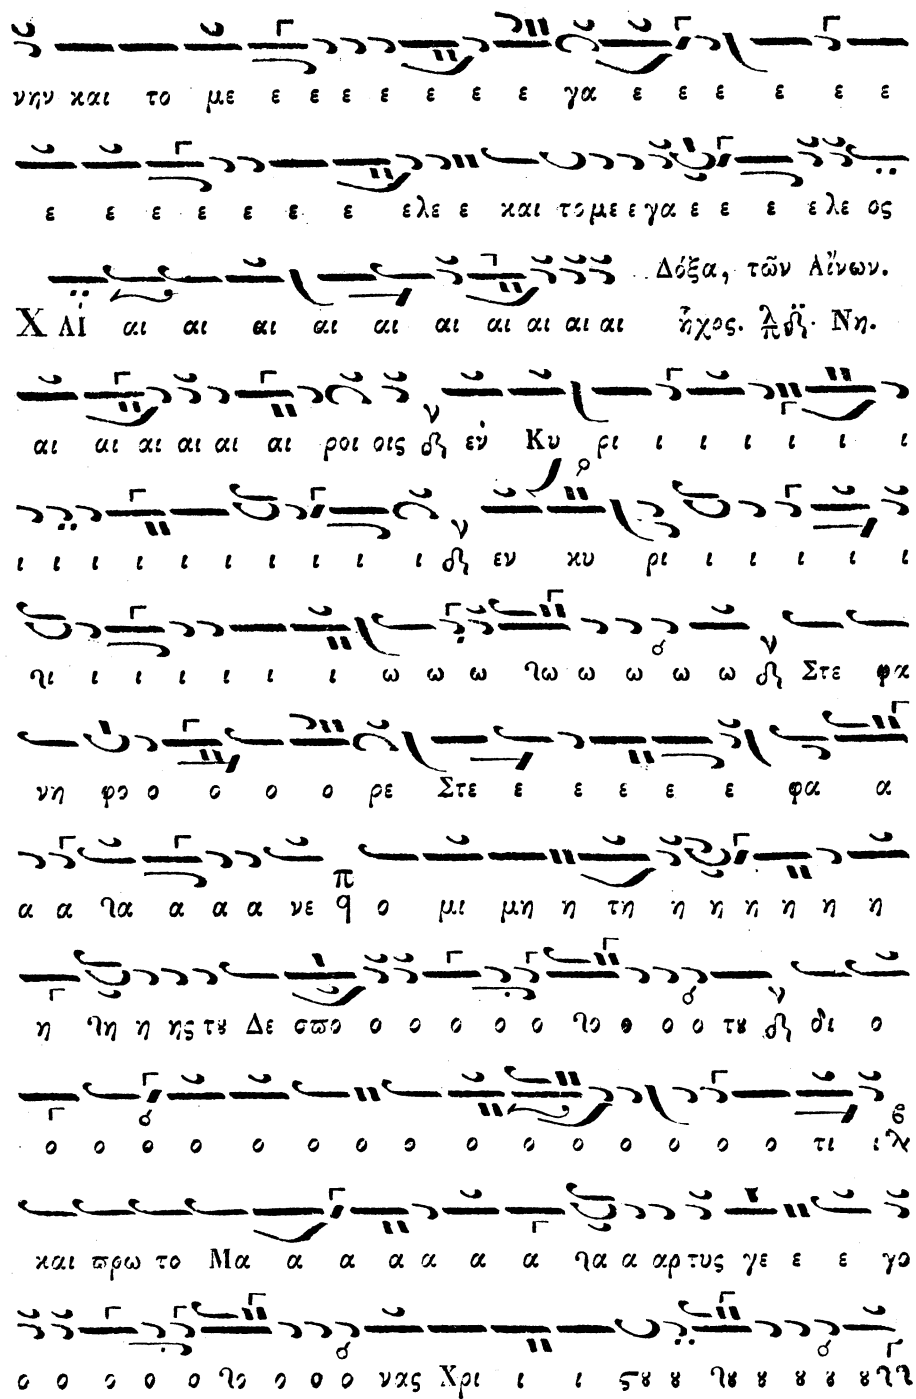 νην και το με ε ε ε ε ε ε ε γα ε ε ε ε ε ε
ε ε ε ε ε ε ε ελε ε και το με ε γα ε ε ε ε λε ος
Δόξα, τῶν Αἴνων.
Χ ΑΙ αι αι αι αι αι αι αι αι αι αι ἦχος. Νη.
αι αι αι αι αι αι ροι οις εν Κυ ρι ι ι ι ι ι ι
ι ι ι ι ι ι ι ι ι ι ι εν κυ ρι ι ι ι ι ι
ι ι ι ι ι ι ω ω ω ω ω ω ω ω ω Στε φα
νη φο ο ο ο ο ρε Στε ε ε ε ε ε φα α
α α α α α α νε π q ο μι μη η τη η η η η η η
η η η ης τȣ Δε σπο ο ο ο ο ο ο ο ο ο τȣ δι ο
ο ο ο ο ο ο ο ο ο ο ο ο ο ο ο τι ι
και πρω το Μα α α α α α α α αρ τυς γε ε ε γο
ο ο ο ο ο ο ο ο νας Χρι ι ι ϛȣ ȣ ȣ ȣ ȣ ȣ ȣ